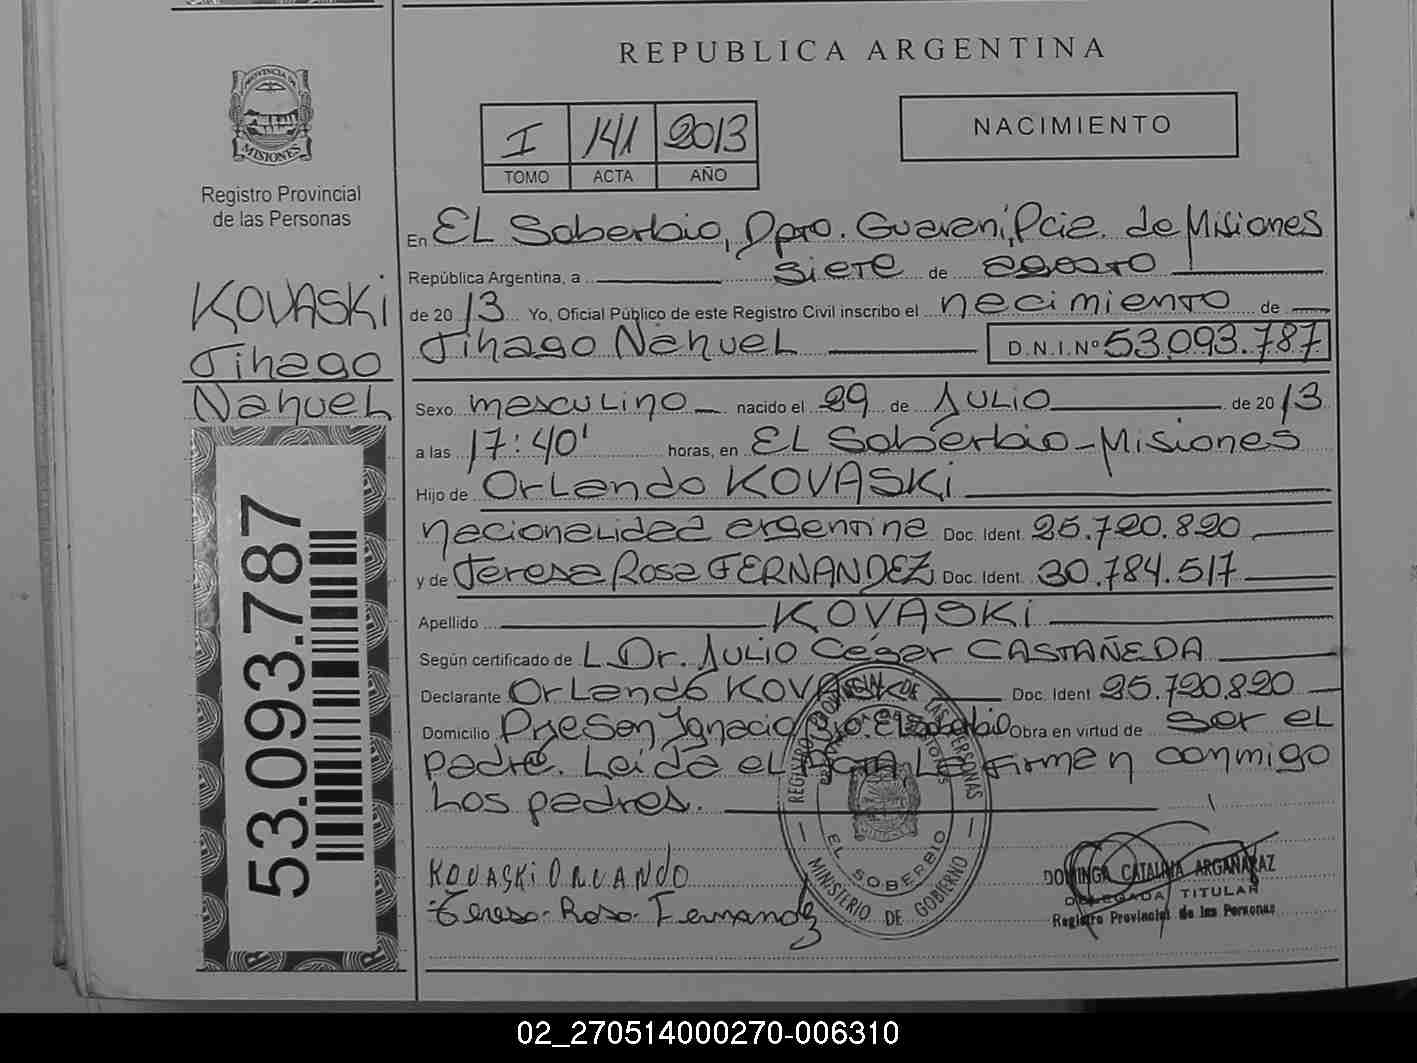 REPUBLICA ARGENTINA
PROVINCIA DE
MISIONES
Registro Provincial
de las Personas
I 141 2013
TOMO ACTA AÑO
NACIMIENTO
En EL Soberbio, Dpto. Guaraní, Pcia. de Misiones
República Argentina, a siete de agosto
de 2013 Yo, Oficial Público de este Registro Civil inscribo el nacimiento de
Tihago Nahuel D.N.I.Nº 53.093.787
KOVASKi
Tihago
Nahuel
53.093.787
Sexo masculino nacido el 29 de Julio de 2013
a las 17:40' horas, en EL Soberbio-Misiones
Hijo de Orlando KOVASKi
nacionalidad argentina Doc. Ident. 25.720.820
y de Teresa Rosa FERNANDEZ Doc. Ident. 30.784.517
Apellido KOVASKi
Según certificado de L Dr. Julio César CASTAÑEDA
Declarante Orlando KOVASKi Doc. Ident 25.720.820
Domicilio Ignacio El Soberbio Obra en virtud de ser el
padre. Leída el Acta La firman conmigo
Los padres.
REGISTRO PROVINCIAL DE LAS PERSONAS
EL SOBERBIO
MINISTERIO DE GOBIERNO
KOVASKi ORLANDO
Teresa Rosa Fernandez
DOMINGA CATALINA ARGAÑARAZ
DELEGADA TITULAR
Registro Provincial de las Personas
02_270514000270-006310